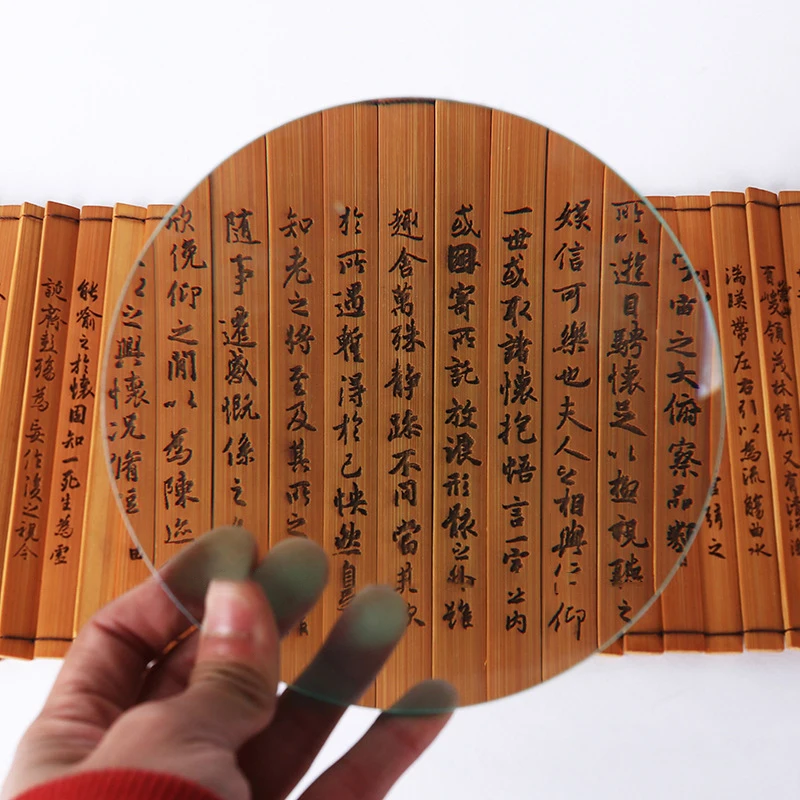 峻領茂林脩竹又有清流激
湍暎帶左右引以為流觴曲水
弦之
宇宙之大俯察品類
所以遊目騁懷足以極視聽之
娛信可樂也夫人之相與俯仰
一世或取諸懷抱悟言一室之內
或因寄所託放浪形骸之外雖
趣舍萬殊靜躁不同當其欣
於所遇暫得於己怏然自
知老之將至及其所之
隨事遷感慨係之
欣俛仰之閒以為陳迹
之興懷況脩短
能喻之於懷固知一死生為虛
誕齊彭殤為妄作後之視今